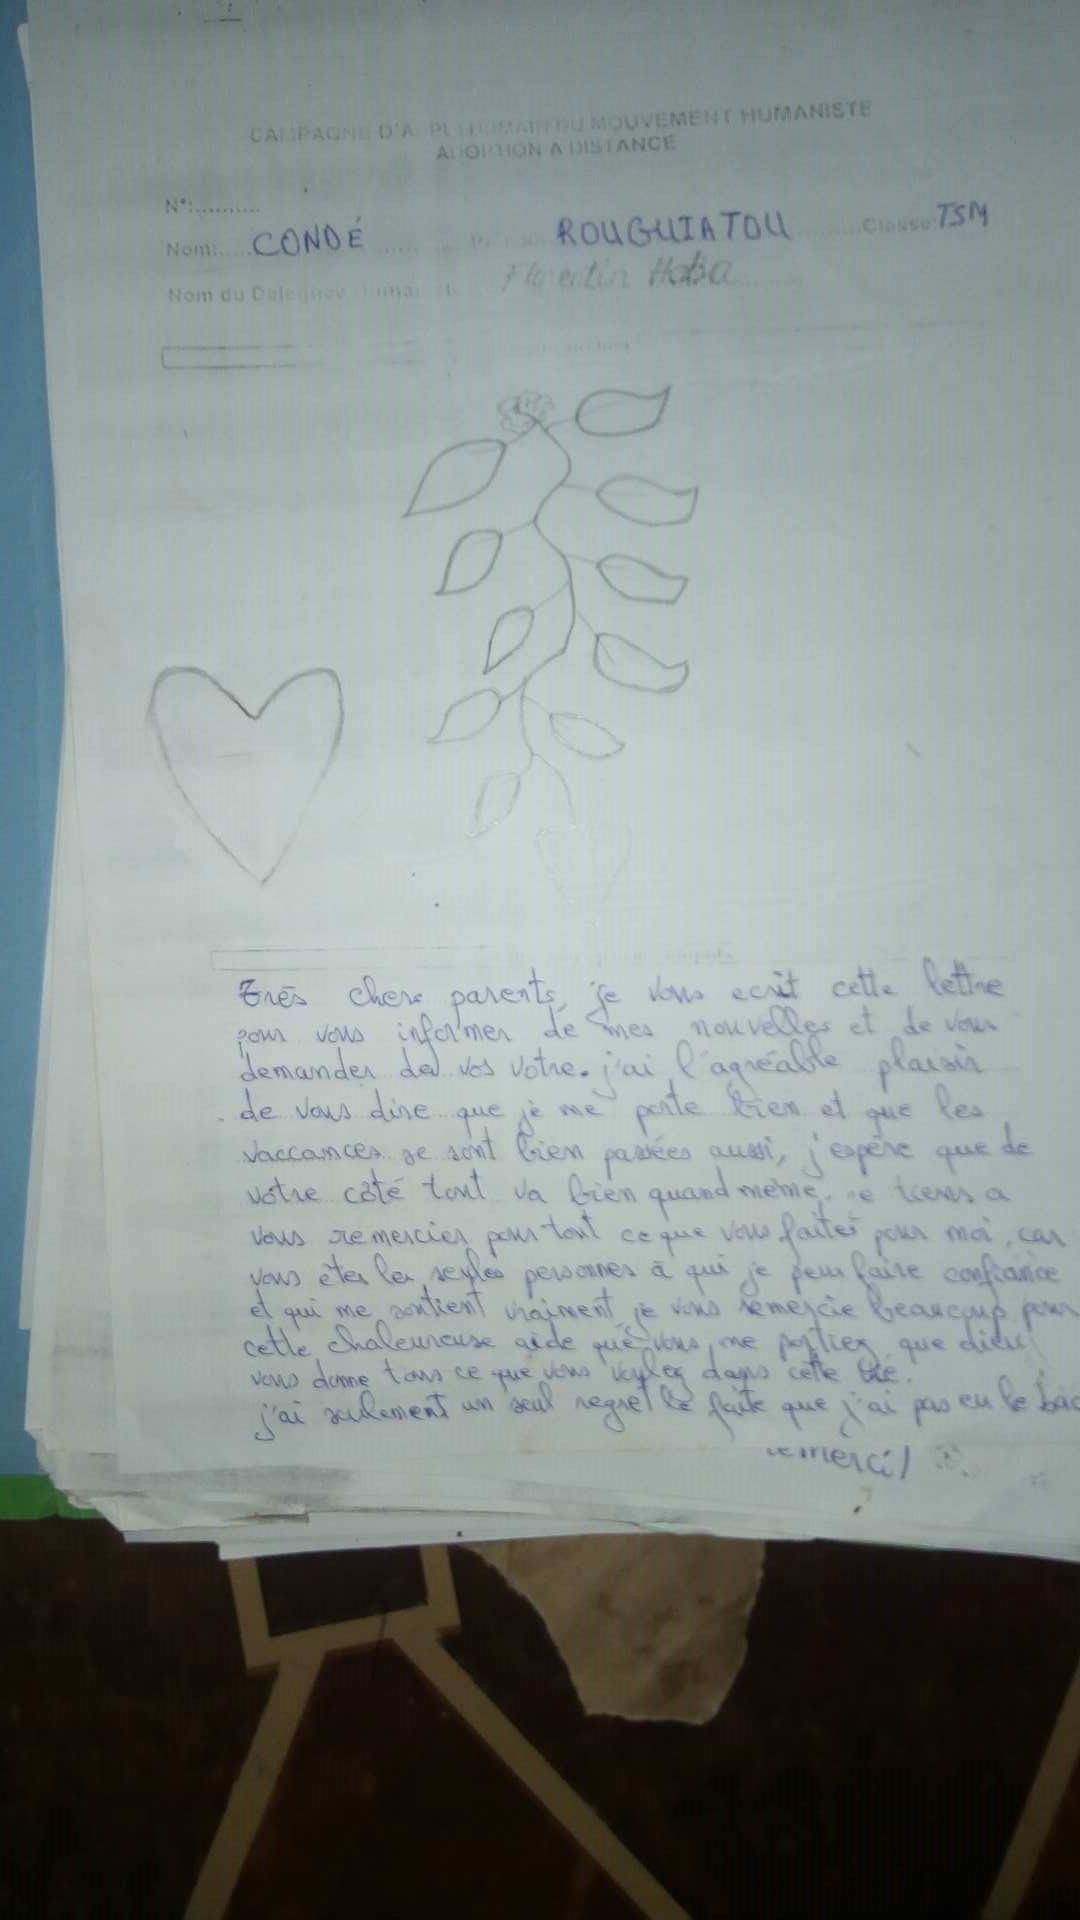 CAMPAGNE D'APPEL HUMAIN DU MOUVEMENT HUMANISTE
ADOPTION A DISTANCE
N°:..........
Nom:.....CONDÉ ROUGUIATOU Classe:TSM
Nom du Délégué Florentin Haba
Très chers parents, je vous ecrit cette lettre
pour vous informer de mes nouvelles et de vous
demander de vos votre. j'ai l'agréable plaisir
de vous dire que je me porte bien et que les
vaccances se sont bien passées aussi, j'espère que de
votre côté tout va bien quand même, je tiens a
vous remercier pour tout ce que vous faites pour moi, car
vous êtes les seules personnes à qui je peux faire confiance
et qui me soutient vraiment, je vous remercie beaucoup pour
cette chaleureuse aide que vous me portiez, que dieu
vous donne tous ce que vous voulez dans cette vie.
j'ai seulement un seul regret le faite que j'ai pas eu le bac
merci!